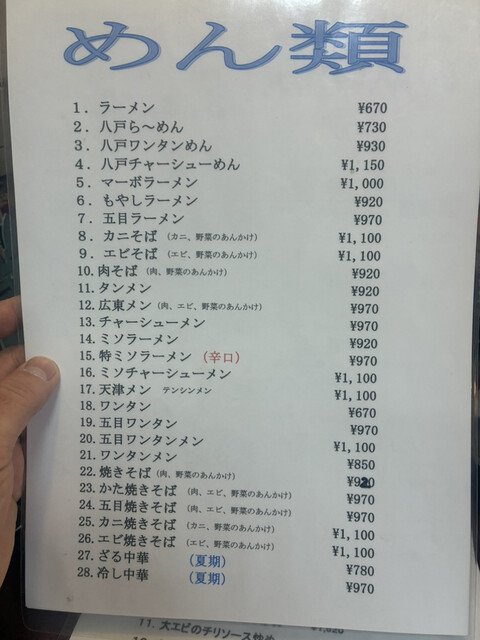 めん類
1．ラーメン ¥670
2．八戸ら～めん ¥730
3．八戸ワンタンめん ¥930
4．八戸チャーシューめん ¥1,150
5．マーボラーメン ¥1,000
6．もやしラーメン ¥920
7．五目ラーメン ¥970
8．カニそば（カニ、野菜のあんかけ） ¥1,100
9．エビそば（エビ、野菜のあんかけ） ¥1,100
10.肉そば（肉、野菜のあんかけ） ¥920
11.タンメン ¥920
12.広東メン（肉、エビ、野菜のあんかけ） ¥970
13.チャーシューメン ¥970
14.ミソラーメン ¥920
15.特ミソラーメン（辛口） ¥970
16.ミソチャーシューメン ¥1,100
17.天津メン テンシンメン ¥1,100
18.ワンタン ¥670
19.五目ワンタン ¥970
20.五目ワンタンメン ¥1,100
21.ワンタンメン ¥850
22.焼きそば（肉、野菜のあんかけ） ¥920
23.かた焼きそば（肉、エビ、野菜のあんかけ） ¥970
24.五目焼きそば（肉、エビ、野菜のあんかけ） ¥970
25.カニ焼きそば（カニ、野菜のあんかけ） ¥1,100
26.エビ焼きそば（エビ、野菜のあんかけ） ¥1,100
27.ざる中華（夏期） ¥780
28.冷し中華（夏期） ¥970
11. 大エビのチリソース炒め